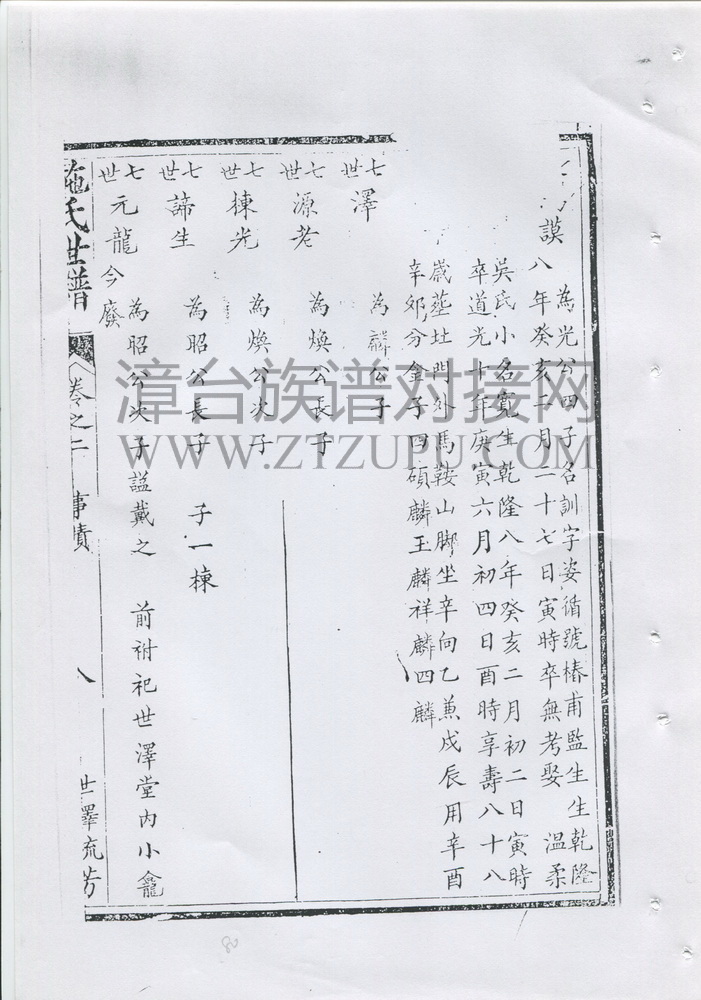 謨
為光公四子名訓字姿循號椿甫監生生乾隆
八年癸亥二月二十七日寅時卒無考娶 溫柔
吳氏小名寅生乾隆八年癸亥二月初二日寅時
卒道光十年庚寅六月初四日酉時享壽八十八
歲塟北門外馬鞍山脚坐辛向乙兼戌辰用辛酉
辛夘分金子四碩麟玉麟祥麟四麟
七世 澤 為麟公子
七世 源老 為煥公長子
七世 棟光 為煥公次子
七世 諦生 為昭公長子 子一棟
七世 元龍 為昭公次子謚戴之 前祔祀世澤堂内小龕
今廢
施氏世譜 卷之二 事蹟 八 世澤流芳
漳台族谱对接网
WWW.ZTZUPU.COM
80